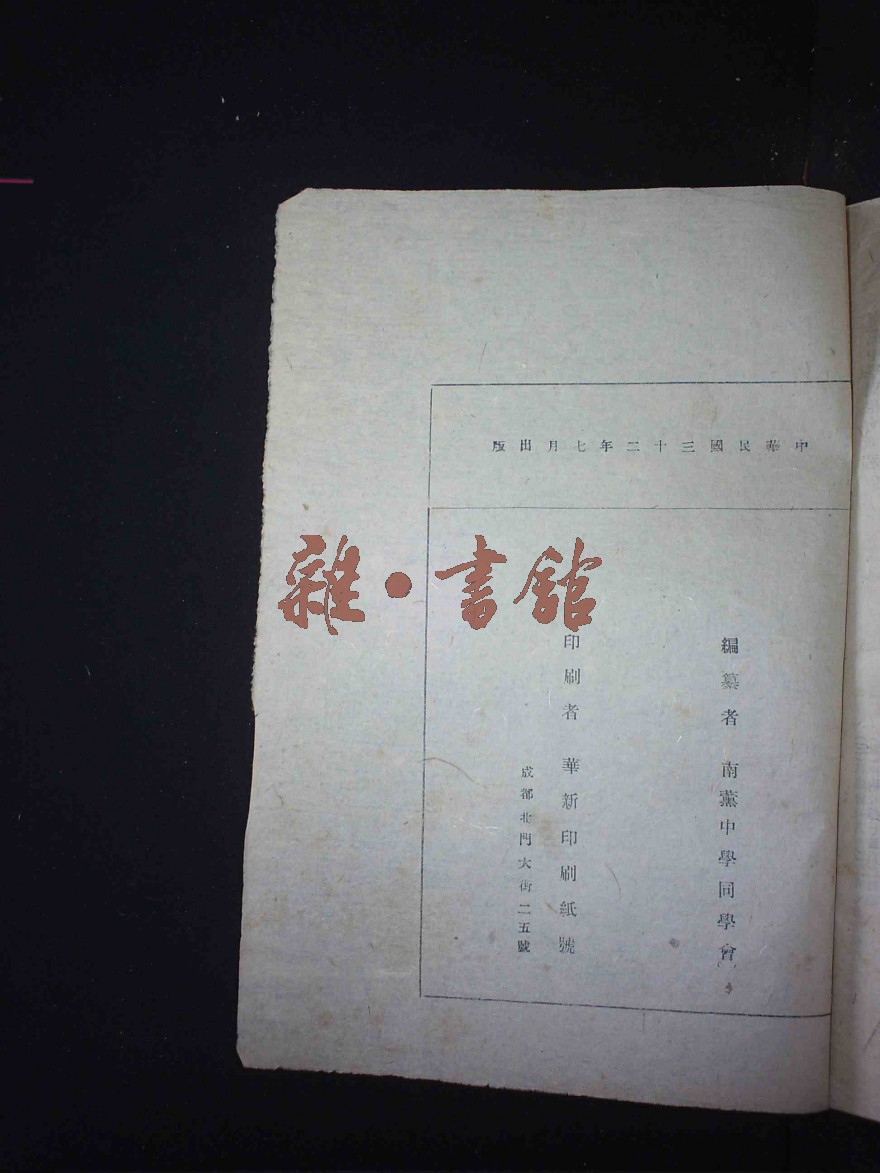 中華民國三十二年七月出版
編纂者 南薰中學同學會
印刷者 華新印刷紙號
成都北門大街二五號
雜·書館